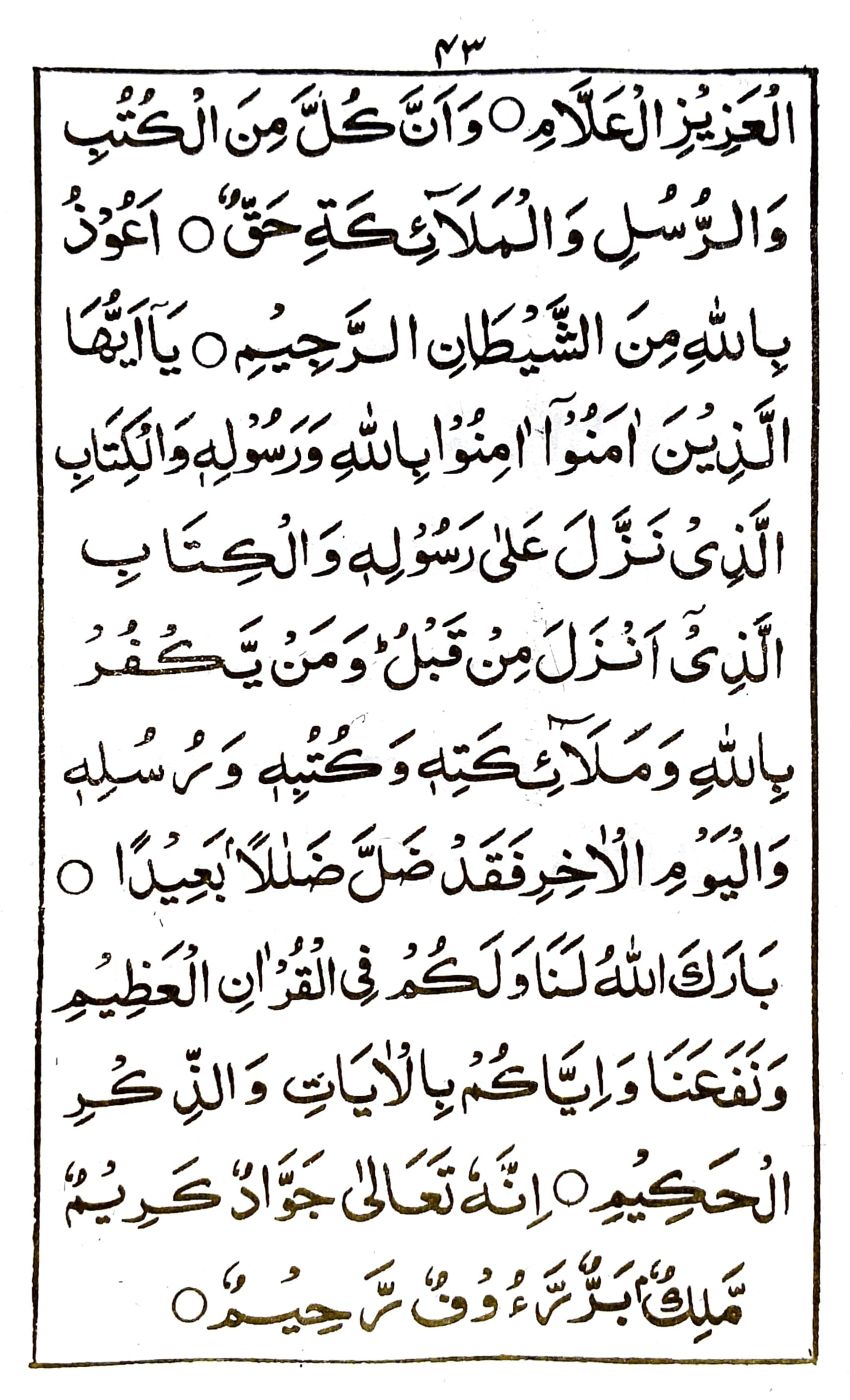 ۴۳
الْعَزِيْزِ الْعَلَّامِ ○ وَاَنَّ كُلًّا مِنَ الْكُتُبِ
وَالرُّسُلِ وَالْمَلَآئِكَةِ حَقٌّ ○ اَعُوْذُ
بِاللهِ مِنَ الشَّيْطَانِ الرَّجِيْمِ ○ يَآاَيُّهَا
الَّذِيْنَ اٰمَنُوْآ اٰمِنُوْا بِاللهِ وَرَسُوْلِهٖ وَالْكِتَابِ
الَّذِىْ نَزَّلَ عَلٰى رَسُوْلِهٖ وَالْكِتَابِ
الَّذِىْٓ اَنْزَلَ مِنْ قَبْلُ ؕ وَمَنْ يَّكْفُرْ
بِاللهِ وَمَلَآئِكَتِهٖ وَكُتُبِهٖ وَرُسُلِهٖ
وَالْيَوْمِ الْاٰخِرِ فَقَدْ ضَلَّ ضَلٰلًا ۢ بَعِيْدًا ○
بَارَكَ اللهُ لَنَا وَلَكُمْ فِى الْقُرْاٰنِ الْعَظِيْمِ
وَنَفَعَنَا وَاِيَّاكُمْ بِالْاٰيَاتِ وَالذِّكْرِ
الْحَكِيْمِ ○ اِنَّهٗ تَعَالٰى جَوَّادٌ كَرِيْمٌ
مَّلِكٌ ۢ بَرٌّ رَّءُوْفٌ رَّحِيْمٌ ○